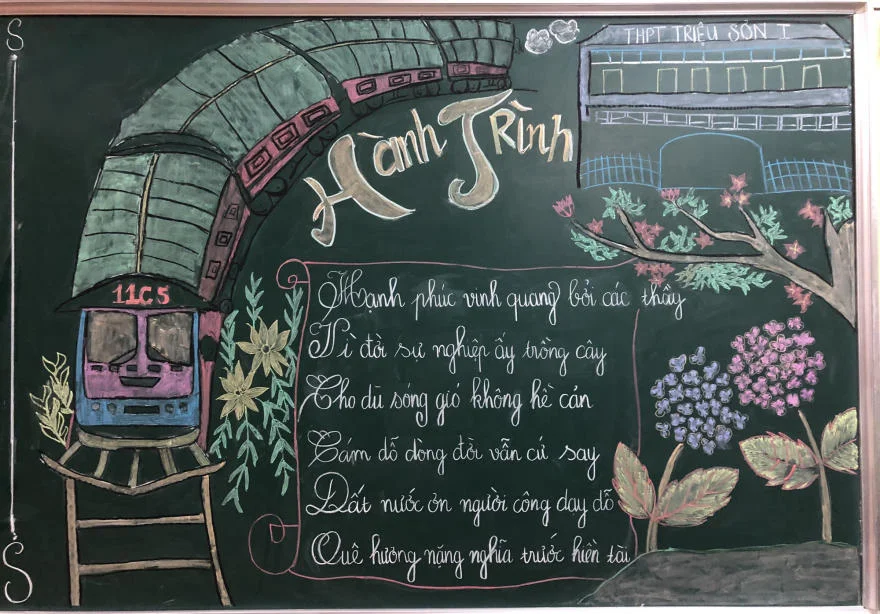 THPT TRIỆU SƠN I
Hành Trình
11C5
Hạnh phúc vinh quang bởi các thầy
Vì đời sự nghiệp ấy trồng cây
Cho dù sóng gió không hề cản
Cám dỗ dòng đời vẫn cứ say
Đất nước ơn người công dạy dỗ
Quê hương nặng nghĩa trước hiền tài
S
S